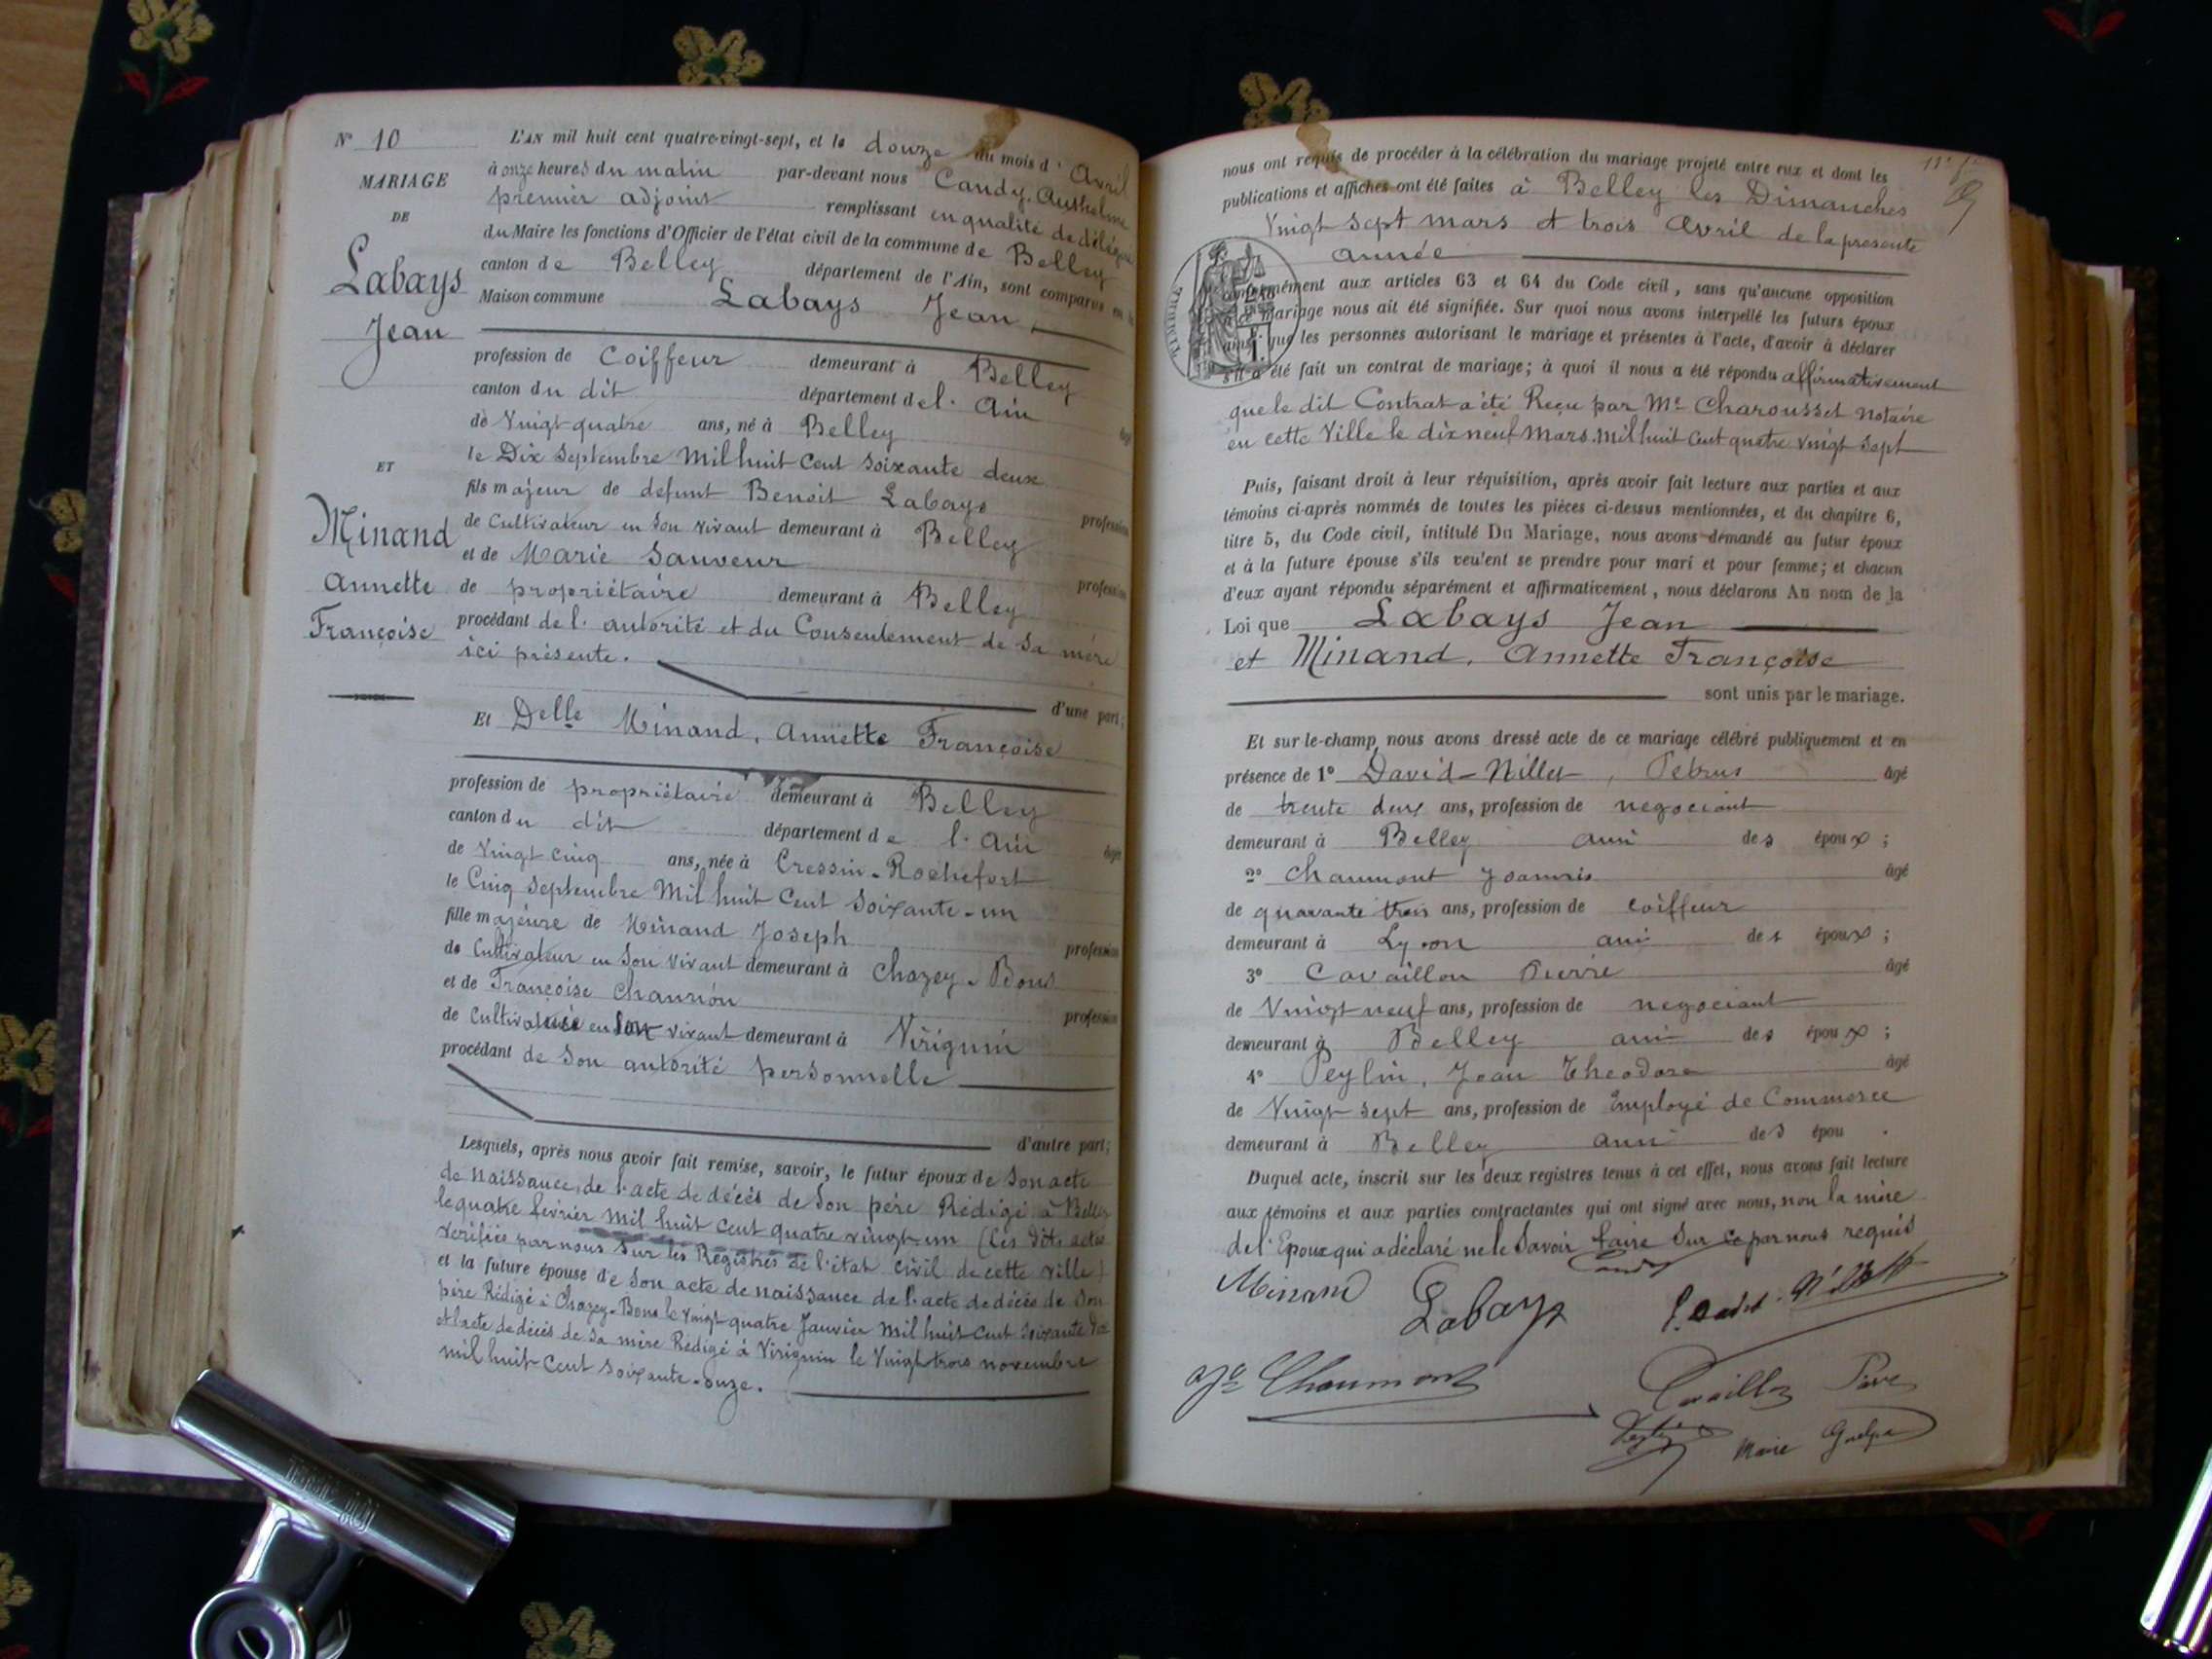 N° 10
MARIAGE
DE
Labays
Jean
ET
Minand
Annette
Françoise
L'AN mil huit cent quatre-vingt-sept, et le douze du mois d' Avril
à onze heures du matin par-devant nous Candy, Anthelme
premier adjoint remplissant en qualité de délégué
du Maire les fonctions d'Officier de l'état civil de la commune de Belley
canton de Belley département de l'Ain, sont comparus en la
Maison commune Labays Jean
profession de Coiffeur demeurant à Belley
canton du dit département de l' Ain
de Vingt quatre ans, né à Belley âgé
le Dix Septembre Mil huit Cent Soixante deux
fils majeur de defunt Benoit Labays
de Cultivateur en Son vivant demeurant à Belley profession
et de Marie Sauveur
de propriétaire demeurant à Belley profession
procédant de l' autorité et du Consentement de Sa mère
ici présente.
d'une part;
Et Delle Minand, Annette Françoise
profession de propriétaire demeurant à Belley
canton du dit département de l' Ain
de Vingt Cinq ans, née à Cressin-Rochefort âgée
le Cinq Septembre Mil huit Cent Soixante-un
fille majeure de Minand Joseph
de Cultivateur en Son vivant demeurant à Chazey-Bons profession
et de Françoise
de en Son vivant demeurant à Virignin profession
procédant de Son autorité personnelle
d'autre part;
Lesquels, après nous avoir fait remise, savoir, le futur époux de Son acte
de Naissance, de l'acte de décès de Son père Rédigé à Belley
le quatre février Mil huit Cent quatre vingt-un (les dits actes
Verifiés par nous Sur les Registres de l'état civil de cette ville)
et la future épouse de Son acte de naissance de l'acte de décès de Son
père Rédigé à Chazey-Bons le Vingt quatre Janvier Mil huit Cent Soixante Dix
et l'acte de décès de Sa mère Rédigé à Virignin le Vingt trois novembre
mil huit Cent Soixante-onze.
nous ont requis de procéder à la célébration du mariage projeté entre eux et dont les
publications et affiches ont été faites à Belley les Dimanches
Vingt Sept mars et trois Avril de la presente
année
TIMBRE
conformément aux articles 63 et 64 du Code civil, sans qu'aucune opposition
à ce mariage nous ait été signifiée. Sur quoi nous avons interpellé les futurs époux
ainsi que les personnes autorisant le mariage et présentes à l'acte, d'avoir à déclarer
s'il a été fait un contrat de mariage; à quoi il nous a été répondu affirmativement
que le dit Contrat a été Reçu par Me Charousset Notaire
en cette Ville le dix neuf Mars Mil huit Cent quatre Vingt Sept
Puis, faisant droit à leur réquisition, après avoir fait lecture aux parties et aux
témoins ci-après nommés de toutes les pièces ci-dessus mentionnées, et du chapitre 6,
titre 5, du Code civil, intitulé Du Mariage, nous avons demandé au futur époux
et à la future épouse s'ils veulent se prendre pour mari et pour femme; et chacun
d'eux ayant répondu séparément et affirmativement, nous déclarons Au nom de la
Loi que Labays Jean
et Minand, Annette Françoise
sont unis par le mariage.
Et sur-le-champ nous avons dressé acte de ce mariage célébré publiquement et en
présence de 1° David-Nillet, Petrus âgé
de trente deux ans, profession de negociant
demeurant à Belley ami des époux;
2° Chaumont Joannis âgé
de quarante trois ans, profession de coiffeur
demeurant à Lyon ami des époux;
3° Cavaillon Pierre âgé
de Vingt neuf ans, profession de negociant
demeurant à Belley ami des époux;
4° Peylin, Jean Theodore âgé
de Vingt Sept ans, profession de Employé de Commerce
demeurant à Belley ami des épou .
Duquel acte, inscrit sur les deux registres tenus à cet effet, nous avons fait lecture
aux témoins et aux parties contractantes qui ont signé avec nous, non la mère
de l'Epoux qui a déclaré ne le Savoir faire Sur ce par nous requis
Candy
Minand Labays
Chaumont Cavaillon Pierre
Marie